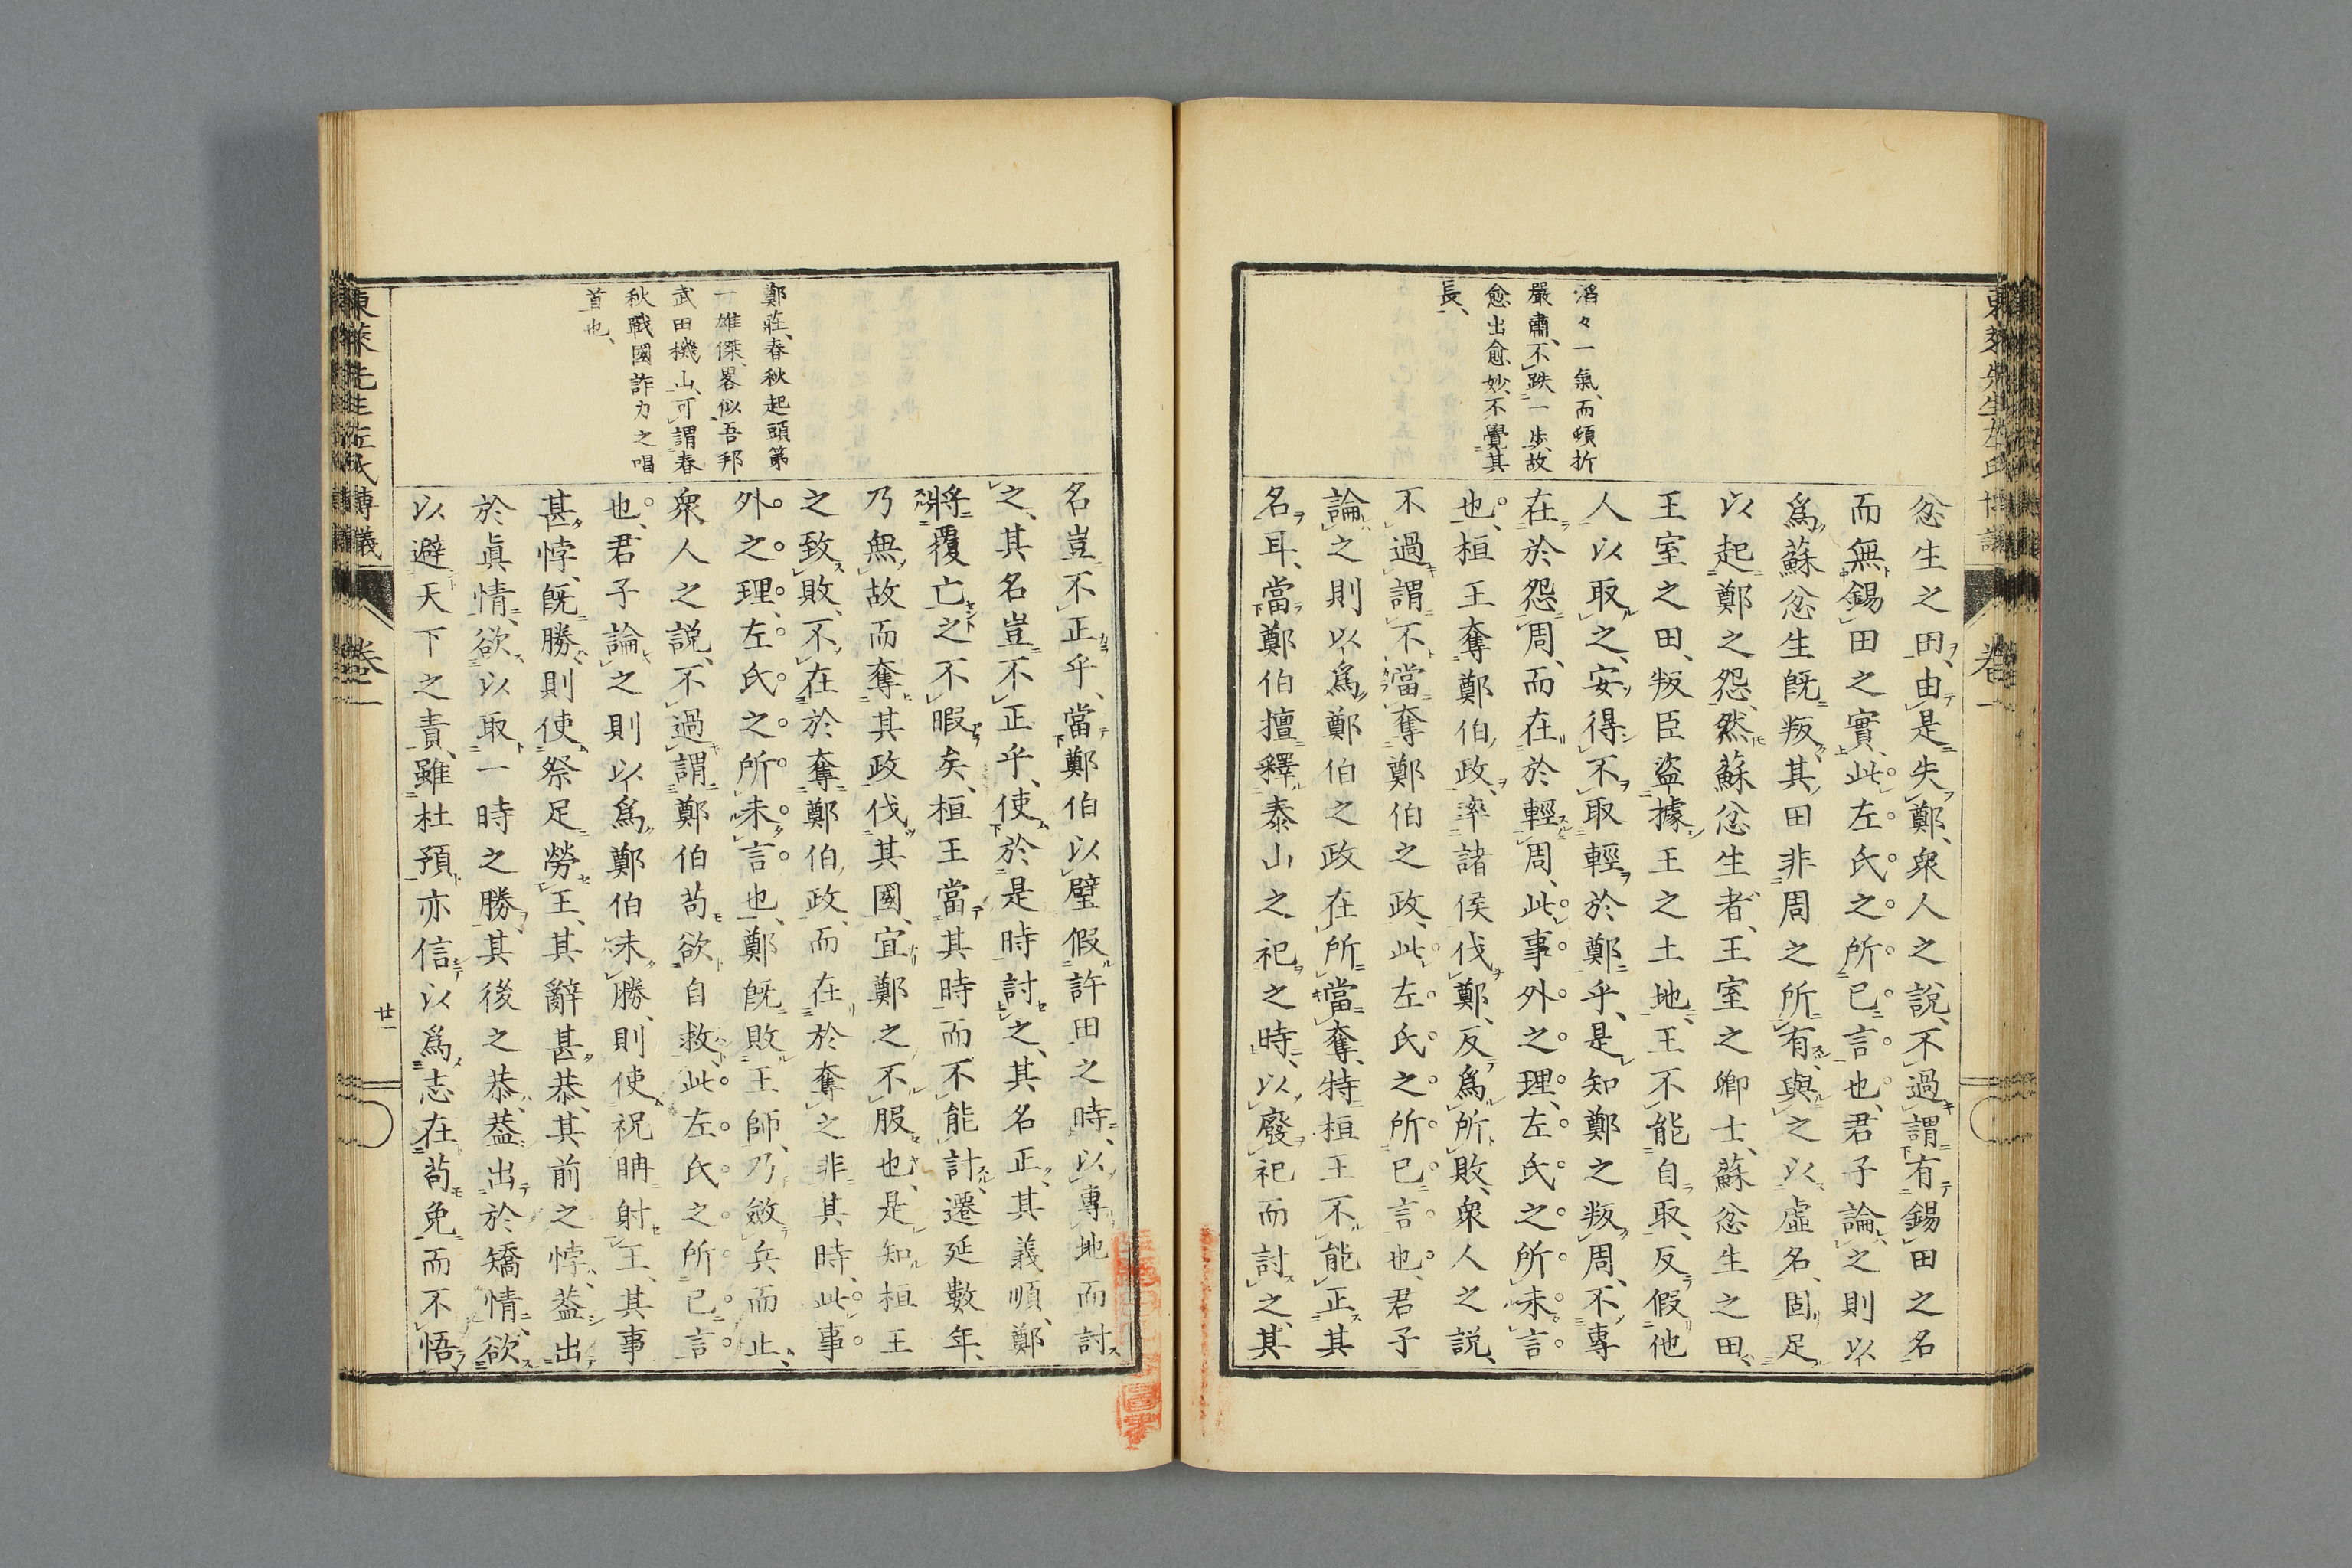 東萊先生左氏博議
卷一
滔々一氣、而頓折
嚴肅、不跌一步、故
愈出愈妙、不覺其
長、
忿生之田、由是失鄭、衆人之說、不過謂有錫田之名
而無錫田之實、此左氏之所已言也、君子論之則以
爲蘇忿生旣叛、其田非周之所有、與之以虛名、固足
以起鄭之怨、然蘇忿生者、王室之卿士、蘇忿生之田、
王室之田、叛臣盜據王之土地、王不能自取、反假他
人以取之、安得不取輕於鄭乎、是知鄭之叛周、不專
在於怨周、而在於輕周、此事外之理、左氏之所未言
也、桓王奪鄭伯政、率諸侯伐鄭、反爲所敗、衆人之說、
不過謂不當奪鄭伯之政、此左氏之所已言也、君子
論之則以爲鄭伯之政在所當奪、特桓王不能正其
名耳、當鄭伯擅釋泰山之祀之時、以廢祀而討之、其
鄭莊、春秋起頭第
一雄傑、畧似吾邦
武田機山、可謂春
秋戰國詐力之唱
首也、
名豈不正乎、當鄭伯以璧假許田之時、以專地而討
之、其名豈不正乎、使於是時討之、其名正、其義順、鄭
將覆亡之不暇矣、桓王當其時而不能討、遷延數年、
乃無故而奪其政伐其國、宜鄭之不服也、是知桓王
之致敗、不在於奪鄭伯政、而在於奪之非其時、此事
外之理、左氏之所未言也、鄭旣敗王師、乃斂兵而止、
衆人之說、不過謂鄭伯苟欲自救、此左氏之所已言
也、君子論之則以爲鄭伯未勝、則使祝聃射王、其事
甚悖、旣勝則使祭足勞王、其辭甚恭、其前之悖、葢出
於眞情、欲以取一時之勝、其後之恭、葢出於矯情、欲
以避天下之責、雖杜預亦信以爲志在苟免而不悟
東萊先生左氏博議
卷一
廿一